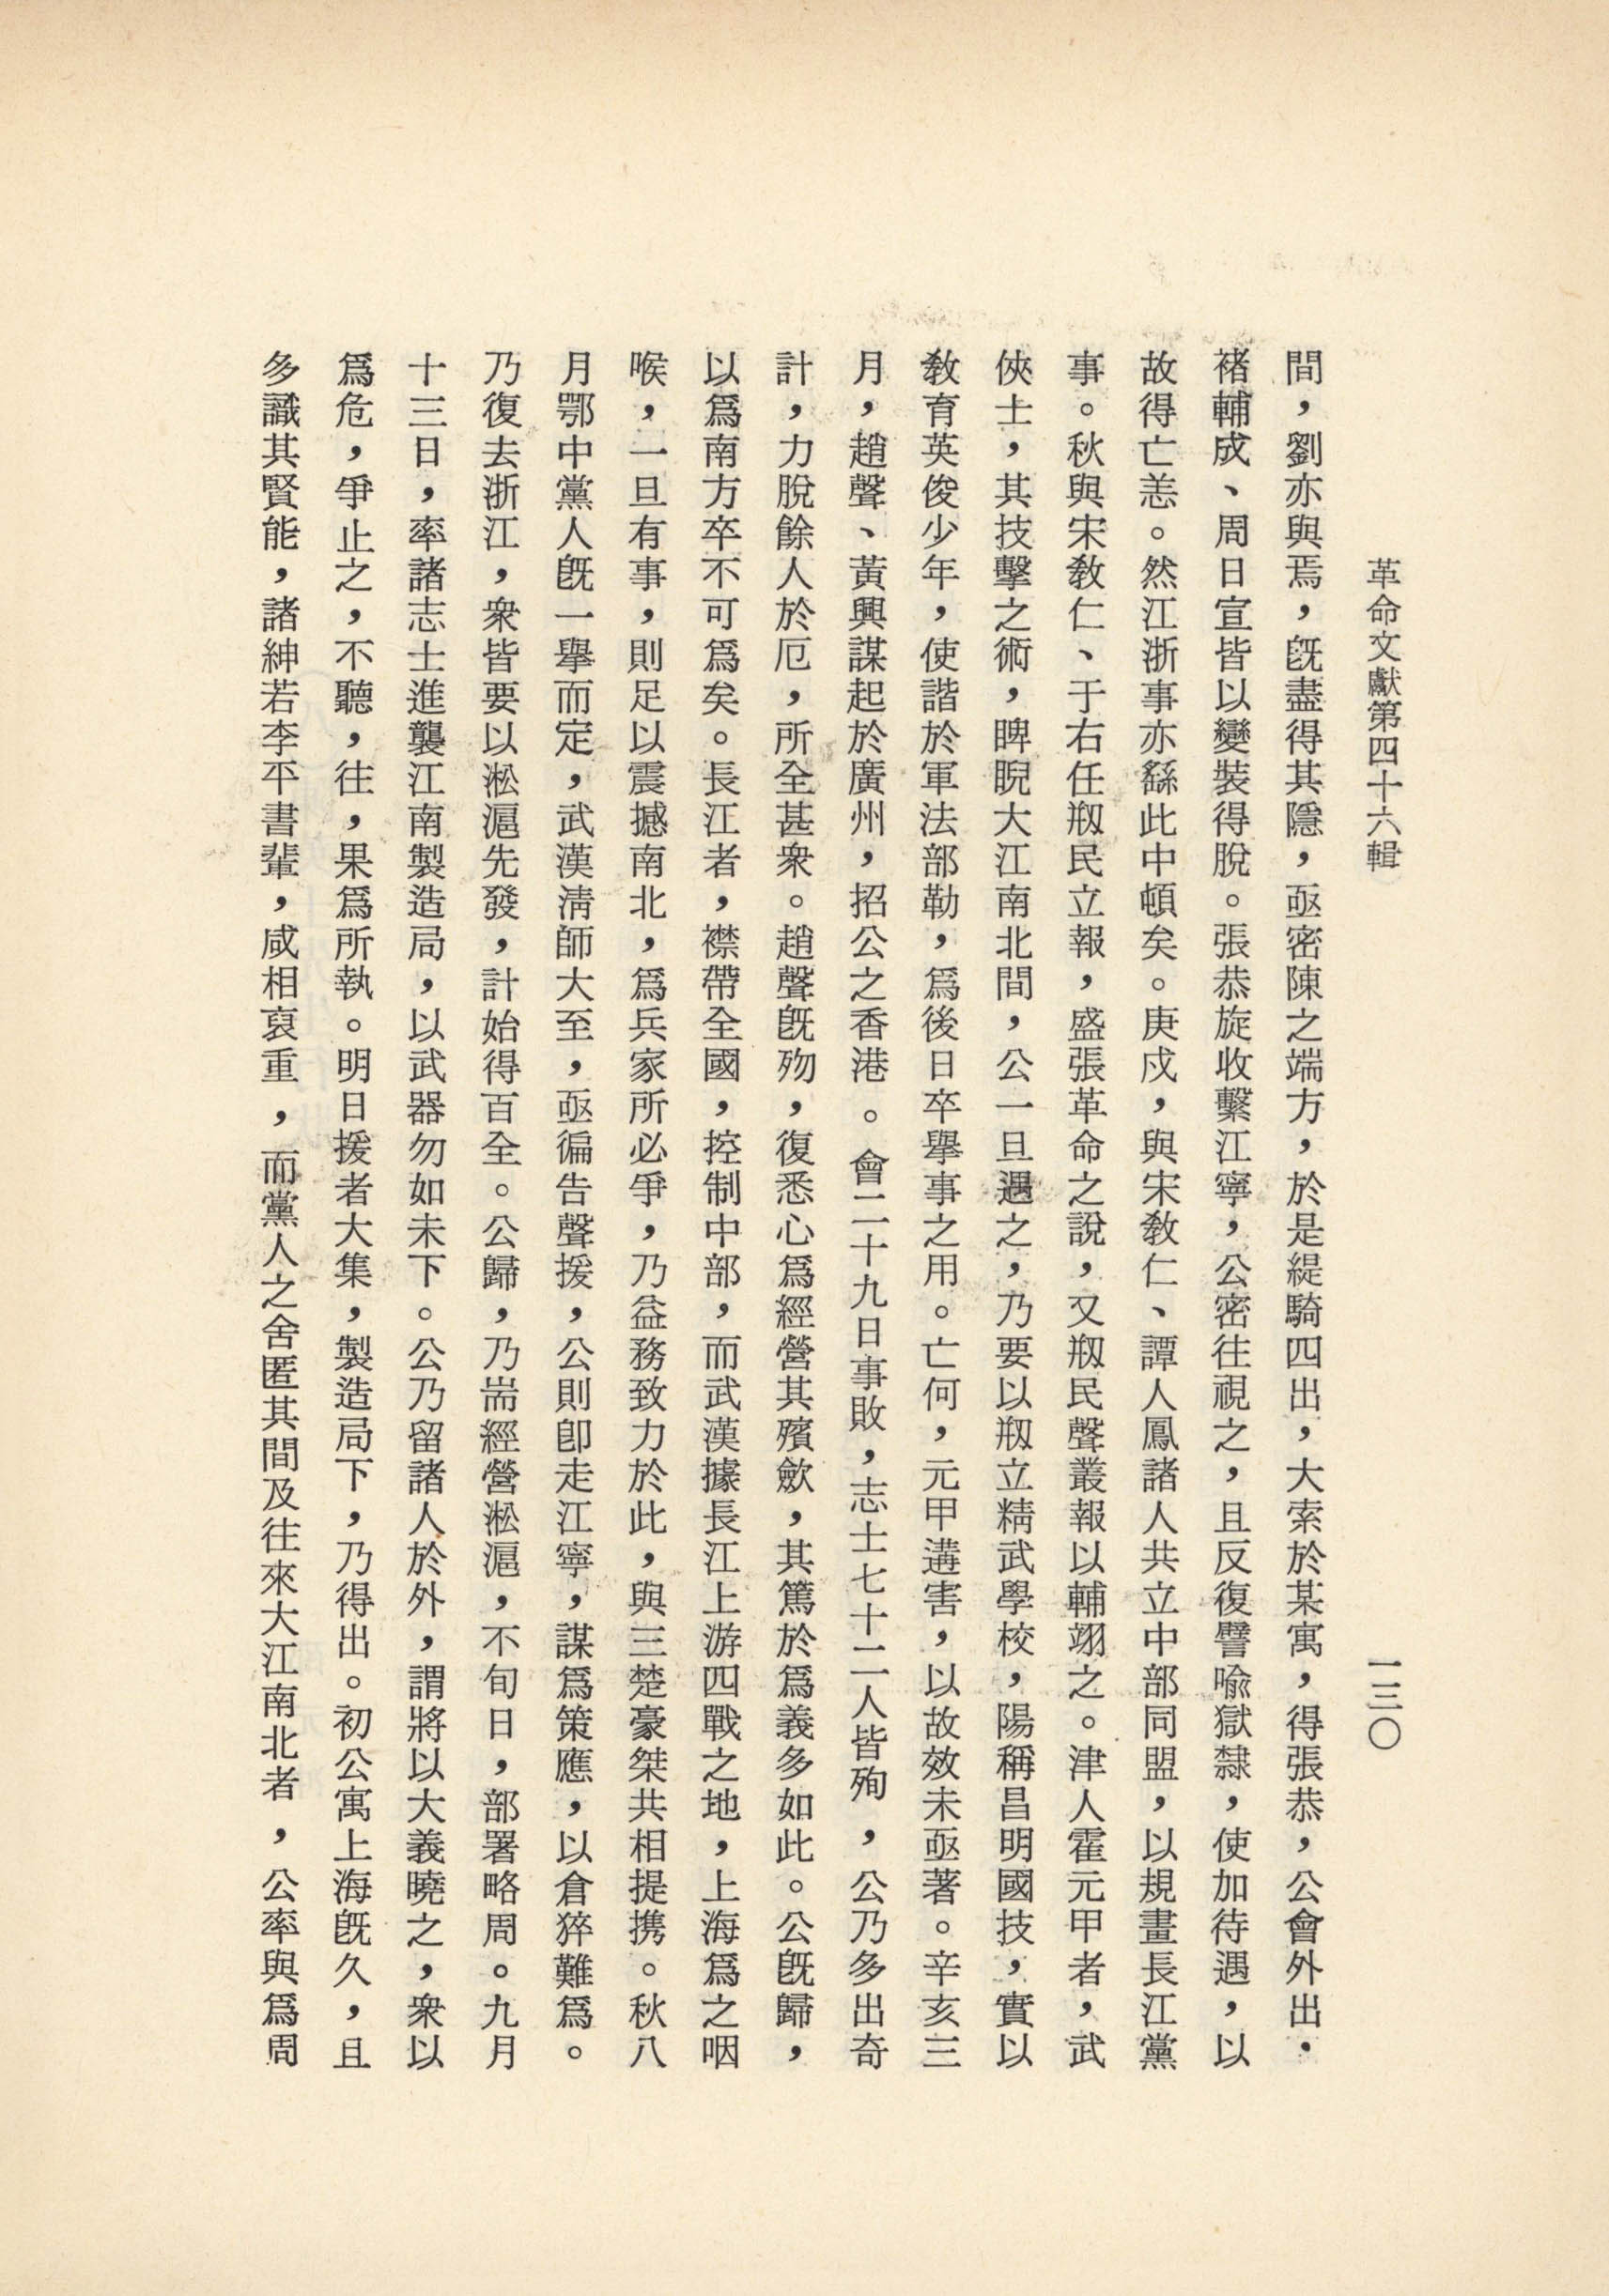 革命文獻第四十六輯
一三〇
間，劉亦與焉，旣盡得其隱，亟密陳之端方，於是緹騎四出，大索於某寓，得張恭，公會外出．
褚輔成、周日宣皆以變裝得脫。張恭旋收繫江寧，公密往視之，且反復譬喩獄隸，使加待遇，以
故得亡恙。然江浙事亦繇此中頓矣。庚戍，與宋敎仁、譚人鳳諸人共立中部同盟，以規畫長江黨
事。秋與宋敎仁、于右任剏民立報，盛張革命之說，又剏民聲叢報以輔翊之。津人霍元甲者，武
俠士，其技擊之術，睥睨大江南北間，公一旦遇之，乃要以剏立精武學校，陽稱昌明國技，實以
敎育英俊少年，使諳於軍法部勒，爲後日卒擧事之用。亡何，元甲遘害，以故效未亟著。辛亥三
月，趙聲、黃興謀起於廣州，招公之香港。會二十九日事敗，志士七十二人皆殉，公乃多出奇
計，力脫餘人於厄，所全甚衆。趙聲旣歿，復悉心爲經營其殯歛，其篤於爲義多如此。公旣歸，
以爲南方卒不可爲矣。長江者，襟帶全國，控制中部，而武漢據長江上游四戰之地，上海爲之咽
喉，一旦有事，則足以震撼南北，爲兵家所必爭，乃益務致力於此，與三楚豪桀共相提携。秋八
月鄂中黨人旣一擧而定，武漢淸師大至，亟徧告聲援，公則卽走江寧，謀爲策應，以倉猝難爲。
乃復去浙江，衆皆要以淞滬先發，計始得百全。公歸，乃耑經營淞滬，不旬日，部署略周。九月
十三日，率諸志士進襲江南製造局，以武器勿如未下。公乃留諸人於外，謂將以大義曉之，衆以
爲危，爭止之，不聽，往，果爲所執。明日援者大集，製造局下，乃得出。初公寓上海旣久，且
多識其賢能，諸紳若李平書輩，咸相裒重，而黨人之舍匿其間及往來大江南北者，公率與爲周